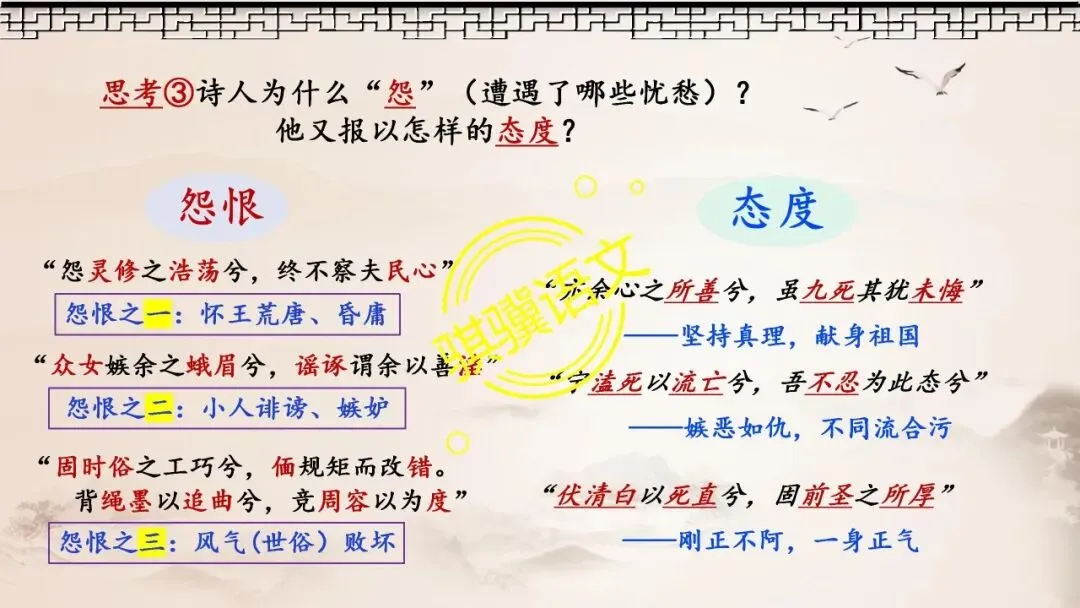 思考③诗人为什么“怨”（遭遇了哪些忧愁）？
他又报以怎样的态度？
怨恨
“怨灵修之浩荡兮，终不察夫民心”
怨恨之一：怀王荒唐、昏庸
“众女嫉余之蛾眉兮，谣诼谓余以善淫”
怨恨之二：小人诽谤、嫉妒
“固时俗之工巧兮，偭规矩而改错。
背绳墨以追曲兮，竞周容以为度”
怨恨之三：风气(世俗）败坏
态度
“亦余心之所善兮，虽九死其犹未悔”
——坚持真理，献身祖国
“宁溘死以流亡兮，吾不忍为此态兮”
——嫉恶如仇，不同流合污
“伏清白以死直兮，固前圣之所厚”
——刚正不阿，一身正气
骐骥语文